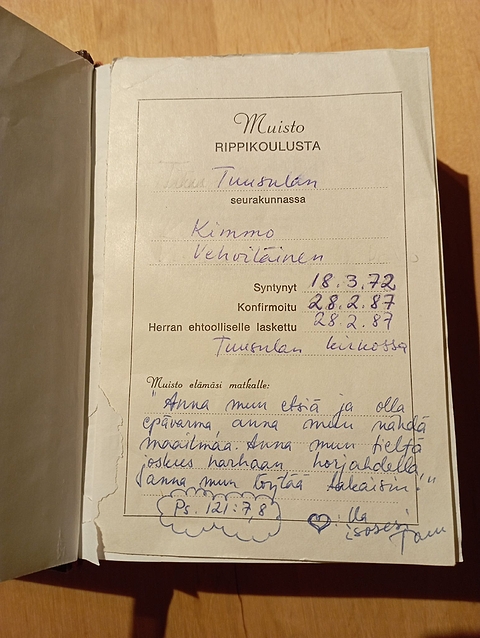 Muisto
RIPPIKOULUSTA
Tuusulan
seurakunnassa
Kimmo
Vehviläinen
Syntynyt 18.3.72
Konfirmoitu 28.2.87
Herran ehtoolliselle laskettu 28.2.87
Tuusulan kirkossa
Muisto elämäsi matkalle:
"Anna mun etsiä ja olla
epävarma, anna mun nähdä
maailmaa. Anna mun tieltä
joskus harhaan horjahdella
janna mun löytää takaisin!"
Ps. 121:7,8
isosesi